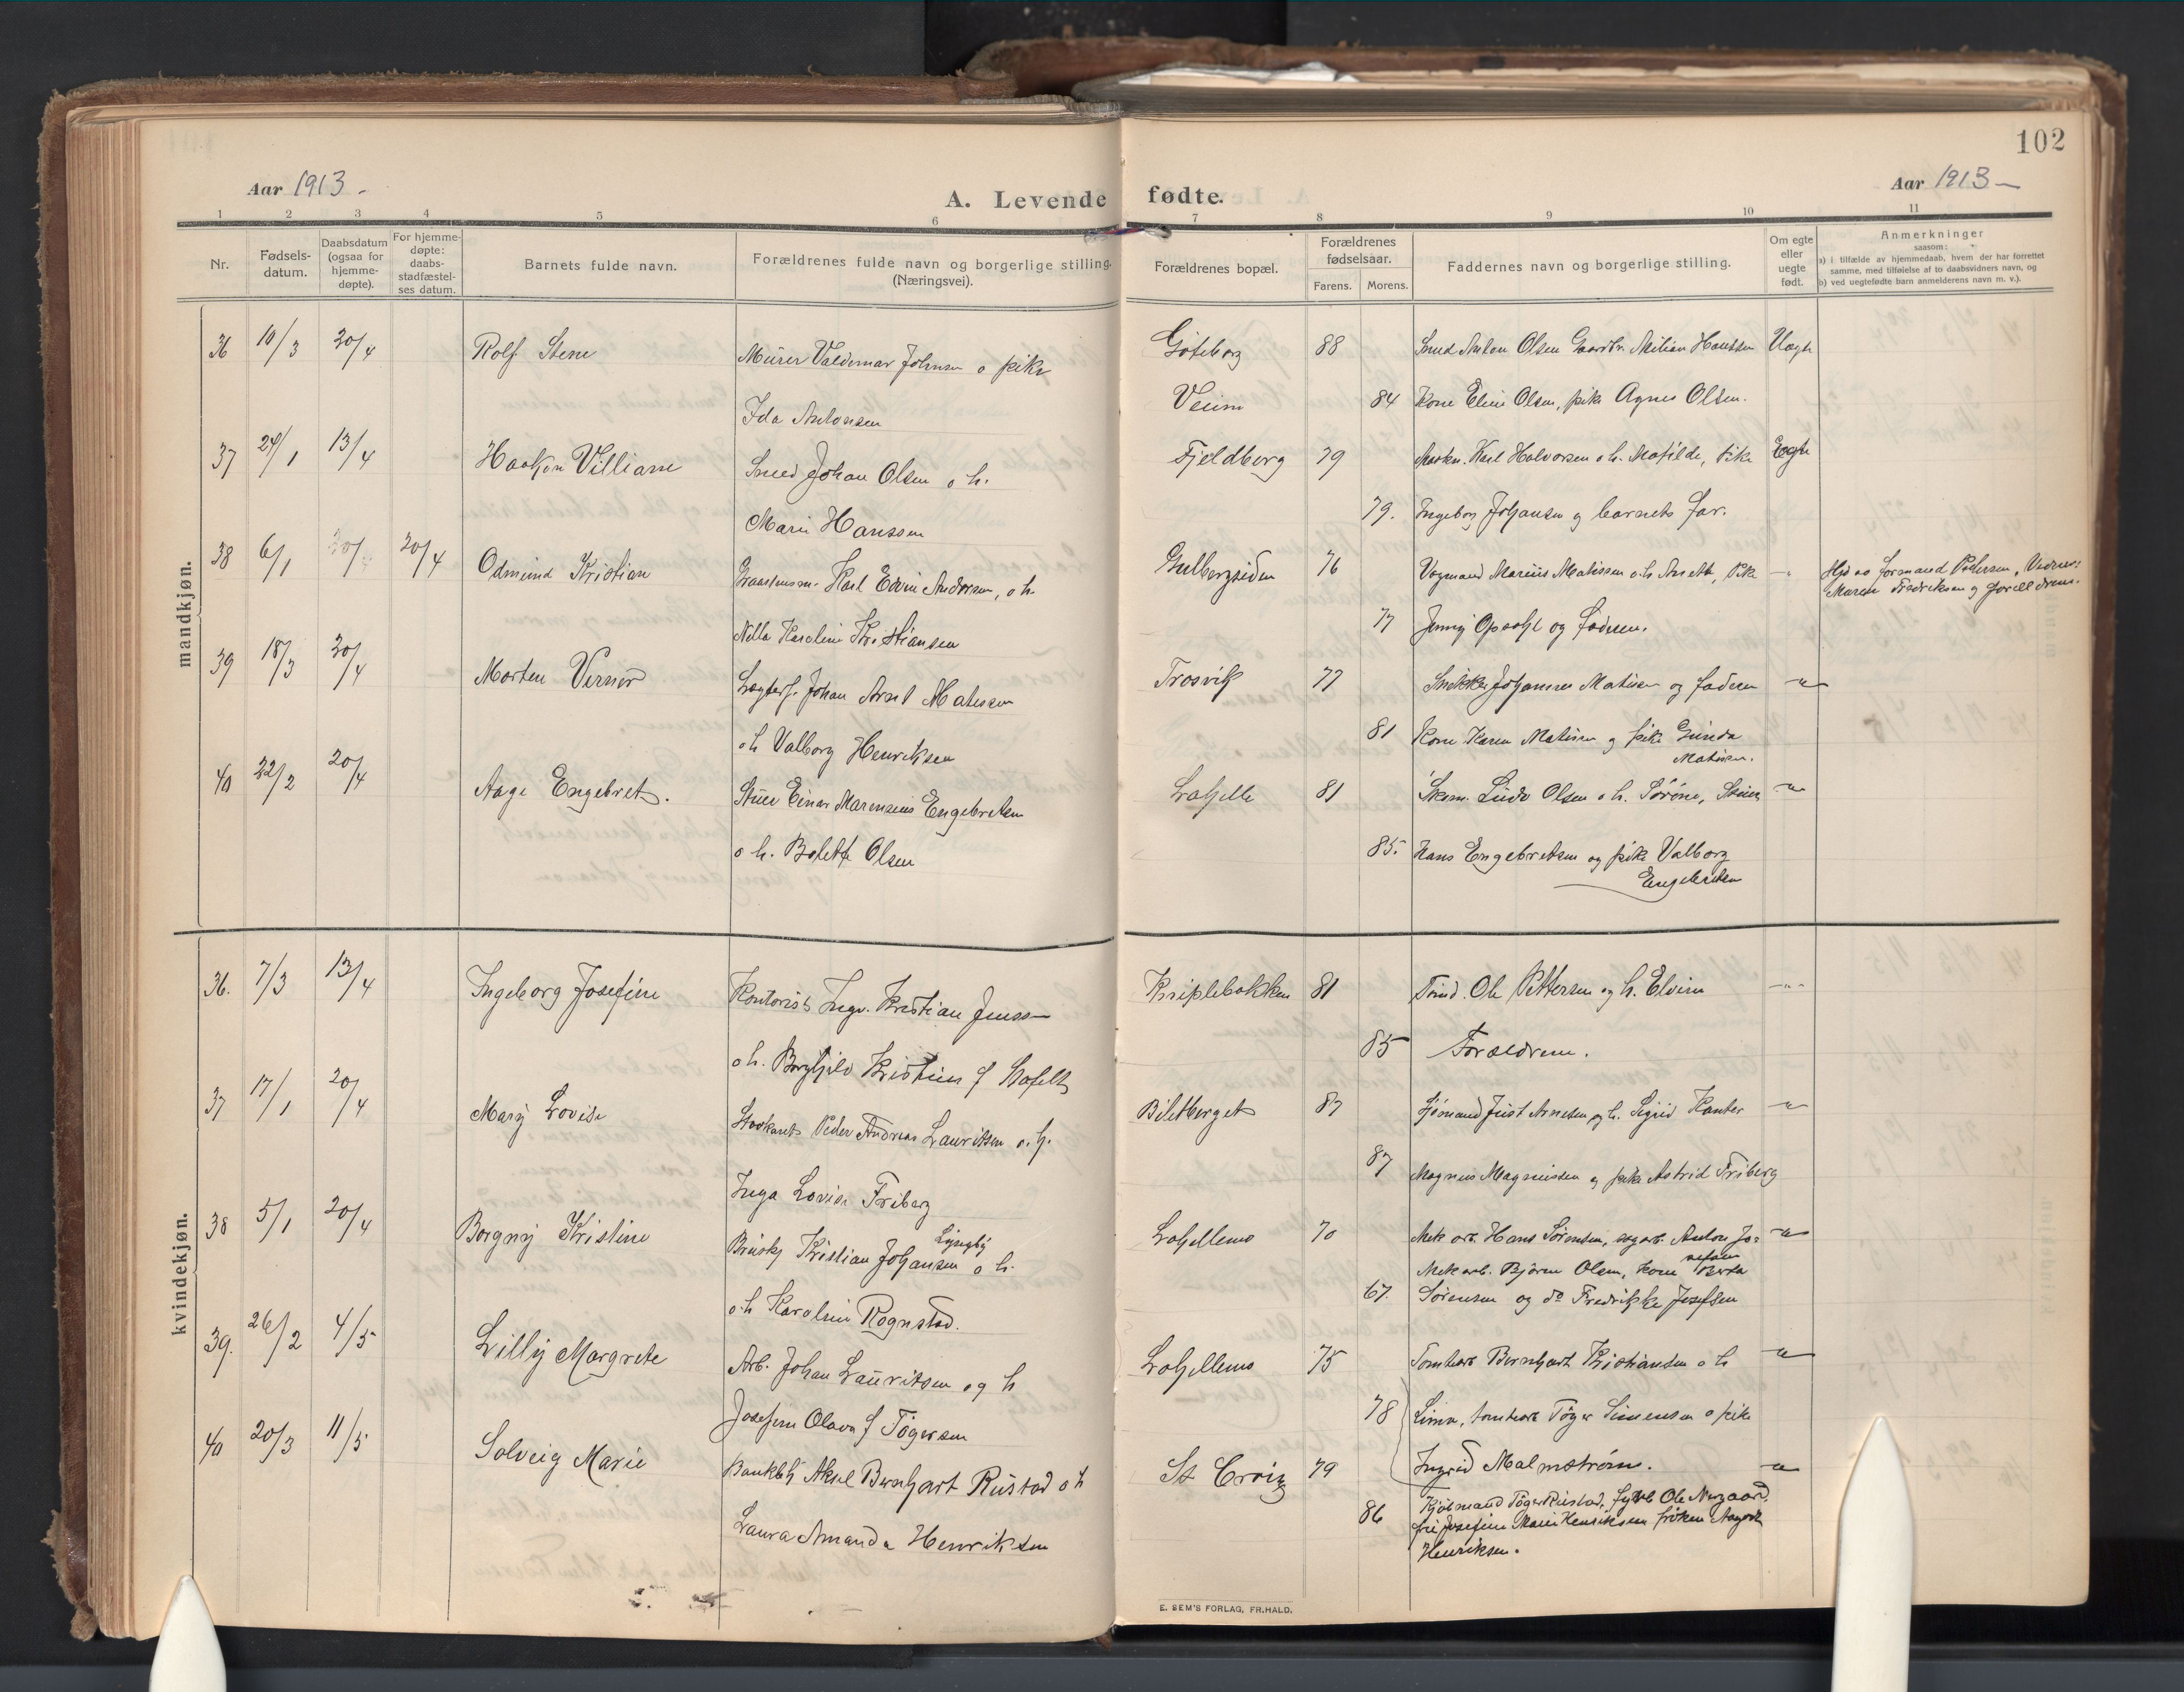 102
Aar 1913 -
A. Levende fødte.
Aar 1913 -
1 2 3 4 5 6 7 8 9 10 11
Nr.
Fødsels-
datum.
Daabsdatum
(ogsaa for
hjemme-
døpte).
For hjemme-
døpte:
daabs-
stadfæstel-
ses datum.
Barnets fulde navn.
Forældrenes fulde navn og borgerlige stilling.
(Næringsvei).
Forældrenes bopæl.
Forældrenes
fødselsaar.
Farens. Morens.
Faddernes navn og borgerlige stilling.
Om egte
eller
uegte
født.
Anmerkninger
saasom:
a) i tilfælde av hjemmedaab, hvem der har forrettet
samme, med tilføielse af to daabsvidners navn, og
b) ved uegtefødte barn anmelderens navn m. v.).
mandkjøn.
36 10/3 20/4 Rolf Stene Murer Valdemar Johnsen o pike Göteborg 88 Smed Anton Olsen Milian Hanssen Uegte
Ida Antonsen Veum 84 Kone Eline Olsen, pike Agnes Olsen.
37 24/1 13/4 Haakon Villiam Smed Johan Olsen o h. Fjeldberg 79 Karl Halvorsen o h. Matilde, pike Egte
Marie Hanssen 79. Ingeborg Johansen og barnets far.
38 6/1 20/4 20/4 Odmund Kristian Karl Edvin Andersen, o h. Gulbergsiden 76 Vognmand Marius Matissen o h Anette, Pike - Hjd av Jormand Pedersen, Vidner:
Maren Fredriksen og forældrene.
Nilla Karoline Kristiansen 77 Jenny Opsahl og faderen.
39 18/3 20/4 Morten Verner Johan Aksel Matissen Trosvik 77 Snekker Johannes Matisen og faderen -"-
o h Valborg Henriksen 81 Kone Karen Matisen og pike Gunda
Matisen.
40 22/2 20/4 Aage Engebret. Stuer Einar Marensius Engebretsen Lahelle 81 Skom. Ludv Olsen o h. Sörine, Stuer -"-
o h. Bolette Olsen 85. Hans Engebretsen og pike Valborg
Engebretsen
kvindekjøn.
36. 7/3 13/4 Ingeborg Josefine Kontorist Ingv. Kristian Jenssen Kniplebakken 81 Ole Pettersen og h. Elvine -"-
o h. Borghild Kristine f 85 Forældrene.
37 17/1 20/4 Mary Lovise Peder Andreas Lauritsen o. h. Biletberget 87 Sjömand Just Arnesen og h. Sigrid Kanter -"-
Inga Lovise Friberg 87 Magnus Magnussen og pike Astrid Friberg
38 5/1 20/4 Borgny Kristine Brusk Kristian Johansen Lyngby o h. Lahellemo 70 Mek arb. Hans Sörensen, sagarb. Anton Jo= -"-
sefsen
Mek arb. Bjarne Olsen, kone Berta
o h Karoline Rognstad. 67. Sörensen og do Fredrikke Josefsen
39. 26/2 4/5 Lilly Margrete Arb. Johan Lauritsen og h Lahellemo 75 Tomtearb Bernhart Kristiansen o h -"-
Josefine Olava f Tögersen 78 Lina, tomtearb Töger Simensen o pike
Ingrid Malmström.
40 20/3 11/5 Solveig Marie Aksel Bernhart Rustad o h St Croix 79 -"-
Laura Amanda Henriksen 86 Kjöbmand Töger Rustad, Ole Nygaard,
fru Josefine Marie Henriksen fröken Aagot
Henriksen.
E. SEM'S FORLAG, FR.HALD.